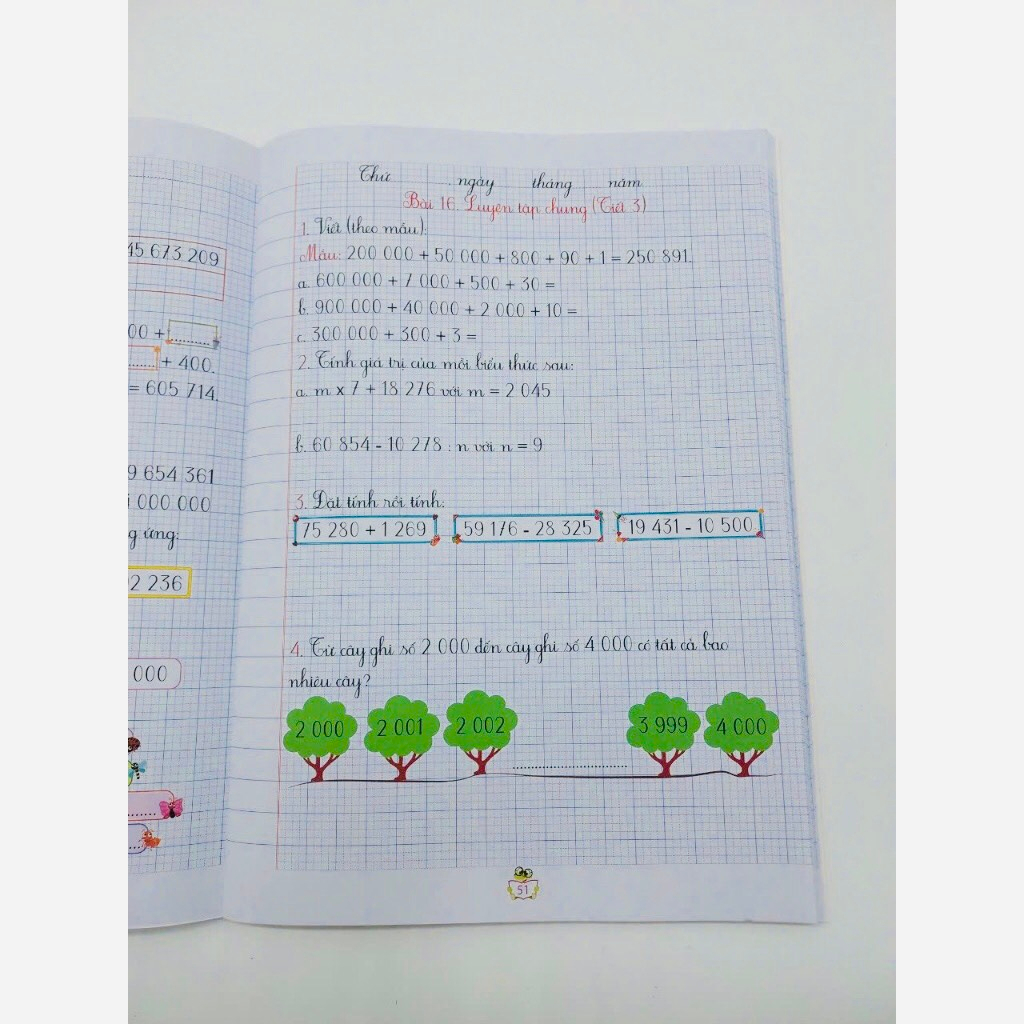 45 673 209
00 + ..........
....... + 400.
= 605 714.
9 654 361
000 000
g ứng:
2 236
000
Thứ ngày tháng năm
Bài 16. Luyện tập chung (Tiết 3)
1. Viết (theo mẫu):
Mẫu: 200 000 + 50 000 + 800 + 90 + 1 = 250 891.
a. 600 000 + 7 000 + 500 + 30 =
b. 900 000 + 40 000 + 2 000 + 10 =
c. 300 000 + 300 + 3 =
2. Tính giá trị của mỗi biểu thức sau:
a. m x 7 + 18 276 với m = 2 045
b. 60 854 - 10 278 : n với n = 9
3. Đặt tính rồi tính:
75 280 + 1 269 59 176 - 28 325 19 431 - 10 500
4. Từ cây ghi số 2 000 đến cây ghi số 4 000 có tất cả bao
nhiêu cây?
2 000 2 001 2 002 .............................. 3 999 4 000
51